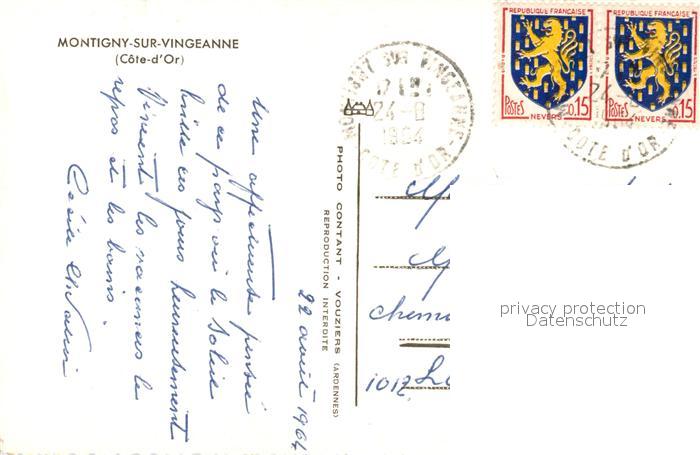 MONTIGNY-SUR-VINGEANNE
(Côte-d'Or)
Une affectueuse pensée
de ce pays où le soleil
brille ces jours heureusement
Vivent les vacances le
repos et les bains.
Cécile
22 août 1964
PHOTO CONTANT - VOUZIERS (ARDENNES)
REPRODUCTION INTERDITE
MONTIGNY SUR VINGEANNE
24-8
1964
COTE D'OR
REPUBLIQUE FRANÇAISE
POSTES 0,15
NEVERS
REPUBLIQUE FRANÇAISE
POSTES 0,15
NEVERS
COTE D'OR
M
M
Chemi
1012 L
privacy protection
Datenschutz